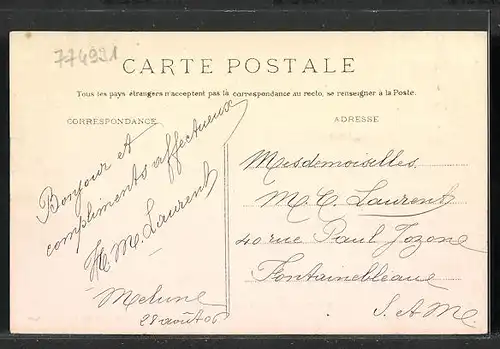 774921
CARTE POSTALE
Tous les pays étrangers n'acceptent pas la correspondance au recto, se renseigner à la Poste.
CORRESPONDANCE
Bonjour et
compliments affectueux
H. M. Laurent
Melun
28 août 06
ADRESSE
Mesdemoiselles
M. C. Laurent
40 rue Paul Jozon
Fontainebleau
S. A M.